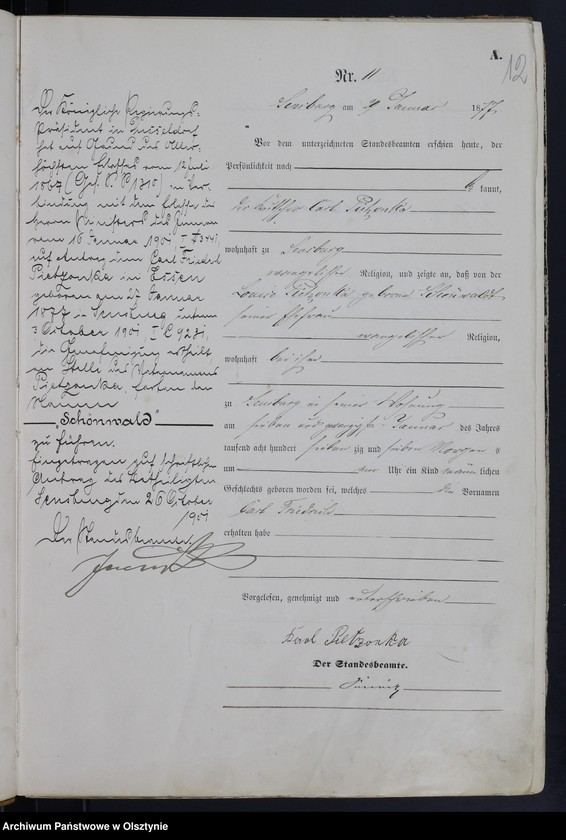 A.
12
Nr. 11
Sensburg am 29 Januar 1877.
Vor dem unterzeichneten Standesbeamten erschien heute, der
Persönlichkeit nach
be kannt,
der Carl Pietzonka
wohnhaft zu Sensburg
evangelischer Religion, und zeigte an, daß von der
Louise Pietzonka geborene Schönwald
seiner Ehefrau
evangelischer Religion,
wohnhaft bei ihm
zu Sensburg in seiner Wohnung
am sieben und zwanzigsten Januar des Jahres
tausend acht hundert sieben zig und sieben Morgens
um Uhr ein Kind männlichen
Geschlechts geboren worden sei, welches die Vornamen
Carl Friedrich
erhalten habe
Vorgelesen, genehmigt und unterschrieben
Karl Pietzonka
Der Standesbeamte.
Der Königliche Regierungs-
Präsident in Düsseldorf
hat auf Grund des Aller-
höchsten Erlasses vom 12 Juli
1867 (Ges. S. S 1310) in Ver-
bindung mit dem Erlasse des
Herrn Ministers des Innern
vom 16 Januar 1901
auf Antrag dem Carl Friedrich
Pietzonka in Essen
geboren am 27 Januar
1877 in Sensburg unterm
3 October 1901 I C 9281,
die Genehmigung ertheilt
an Stelle des Vatersnamens
Pietzonka, fortan den
Namen
"Schönwald"
zu führen.
Eingetragen auf schriftlichen
Antrag des Betheiligten
Sensburg am 26 October
1901
Der Standesbeamte.
Archiwum Państwowe w Olsztynie